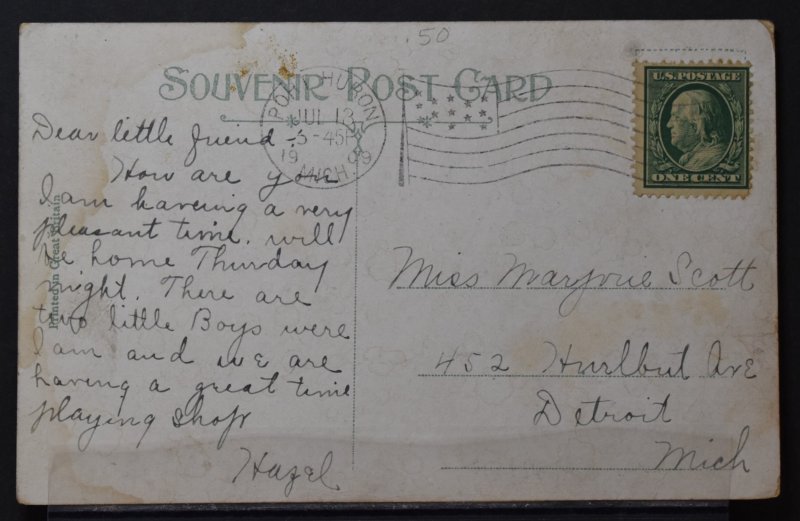 .50
SOUVENIR POST CARD
U.S. POSTAGE
ONE CENT
PORT HURON
JUL 13
3-45P
1909
MICH.
Dear little friend.
How are you
I am haveing a very
pleasant time. will
be home Thurday
night. There are
two little Boys were
I am and we are
having a great time
playing shop
Hazel
Miss Marjorie Scott
452 Hurlbut Ave
Detroit
Mich
Printed in Great Britain